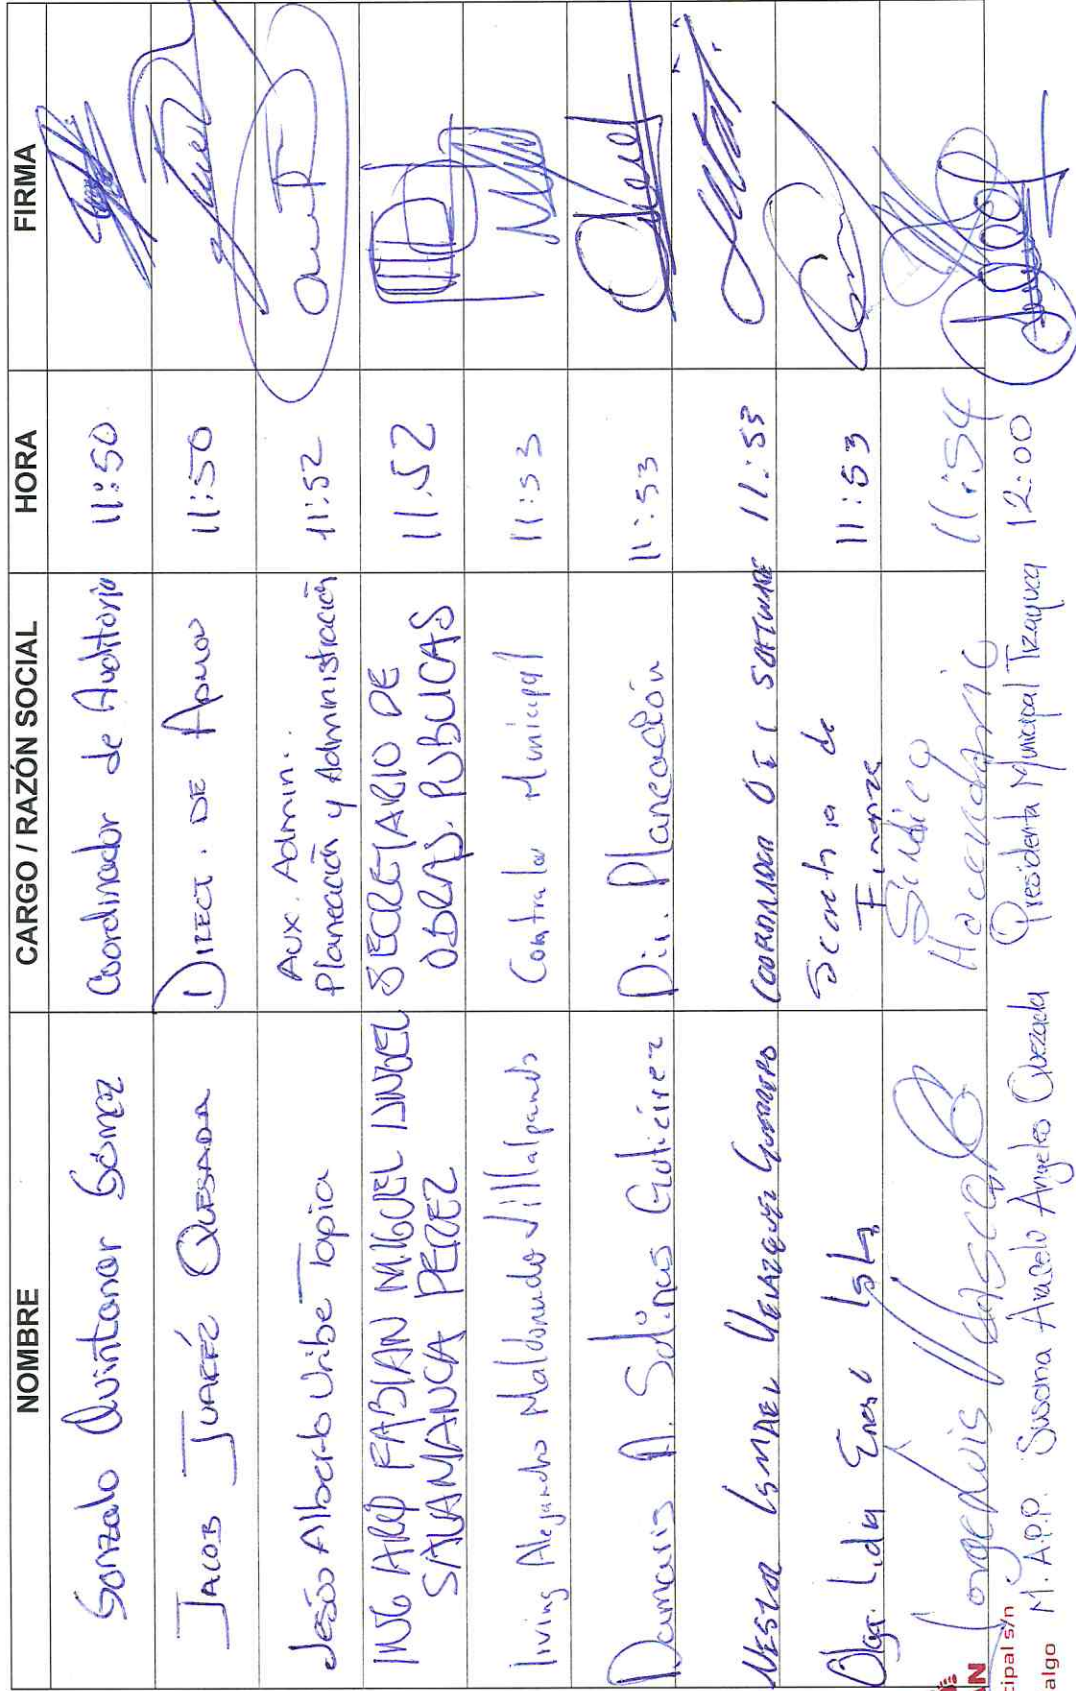 NOMBRE CARGO / RAZÓN SOCIAL HORA FIRMA
Gonzalo Quintanar Gómez Coordinador de Auditoria 11:50
JACOB JUARÉZ QUESADA DIRECT. DE 11:50
Jesús Alberto Uribe Tapia Aux. Admin. 11:52
Planeación y Administración
ING ARQ FABIAN MIGUEL ANGEL SECRETARIO DE 11:52
SALAMANCA PEREZ OBRAS. PUBLICAS
Irving Alejandro Maldonado Villalpando Contralor Municipal 11:53
Damaris A. Salinas Gutiérrez Di. Planeación 11:53
NESTOR ISMAEL VELAZQUEZ GUERRERO COORDINADOR SOFTWARE 11:53
Olga Lidia Secretaria de 11:53
Finanzas
Jorge Luis Sindico 11:54
Hacendario
M. A.P.P. Susana Araceli Angeles Quezada Presidenta Municipal Tizayuca 12:00
AN
cipal s/n
algo